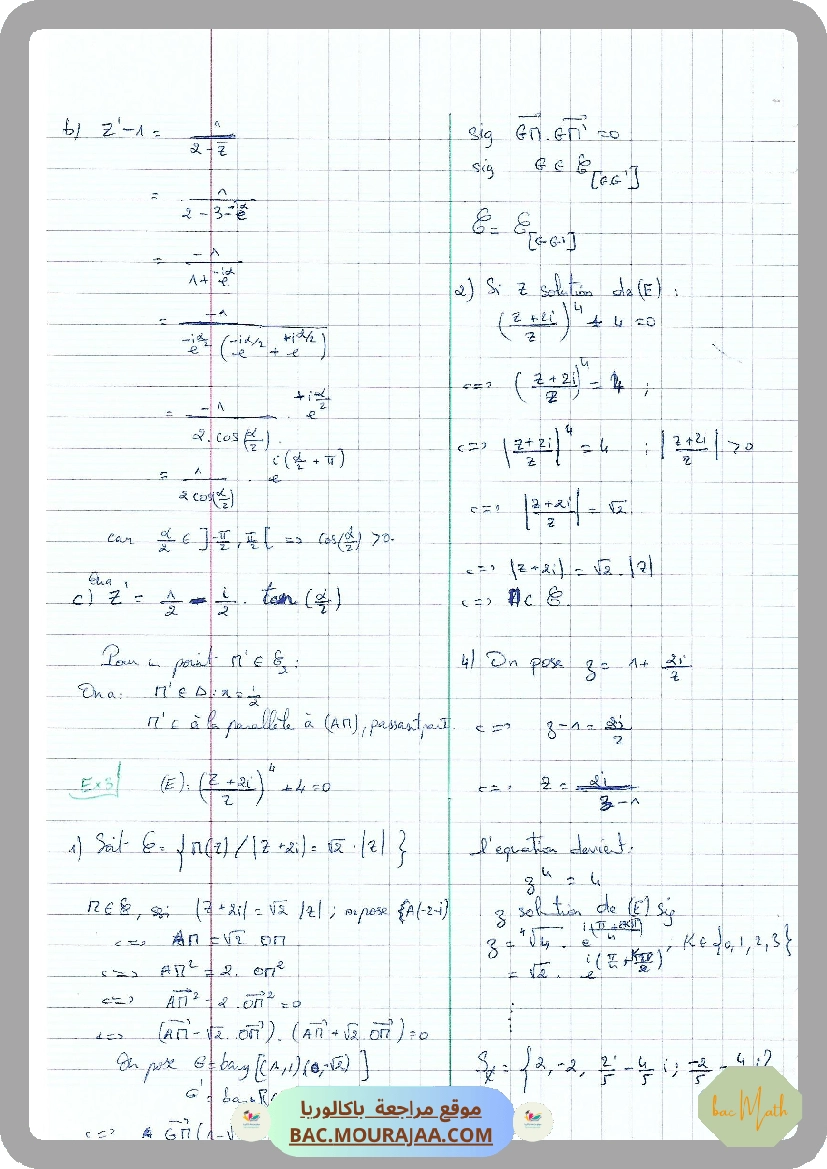 b) Z' - 1 = 1 / (2 - z̄)
= 1 / (2 - 3 - e^(-iα))
= -1 / (1 + e^(-iα))
= -1 / (e^(-iα/2) (e^(-iα/2) + e^(+iα/2)))
= -1 / (2.cos(α/2)) . e^(+iα/2)
= 1 / (2cos(α/2)) . e^(i(α/2 + π))
car α/2 ∈ ]-π/2, π/2[ => cos(α/2) > 0.
Ona
c) Z' = 1/2 - i/2 . tan(α/2)
Pour un point M' ∈ :
Ona: M' ∈ Δ : x = 1/2
M' ∈ à la parallèle à (AM), passant par I.
Ex 3
(E): ((Z + 2i)/Z)^4 + 4 = 0
1) Soit C = { M(z) / |Z + 2i| = √2 . |Z| }
M ∈ C, sig |Z + 2i| = √2 |Z| ; on pose A(-2i)
<=> AM = √2 OM
<=> AM² = 2. OM²
<=> AM² - 2. OM² = 0
<=> (AM - √2 . OM) . (AM + √2 . OM) = 0
On pose G = bary[(A,1)(O,-√2)]
G' =
<=> GM (1-√
sig GM . GM' = 0
sig G ∈ C[GG']
C = C[GG']
2) Si Z solution de (E) :
((Z + 2i)/Z)^4 + 4 = 0
<=> ((Z + 2i)/Z)^4 = 4 ;
<=> |(Z + 2i)/Z|^4 = 4 ; |(Z + 2i)/Z| > 0
<=> |(Z + 2i)/Z| = √2.
<=> |Z + 2i| = √2 . |Z|
<=> M ∈ C.
4) On pose z = 1 + 2i/Z
<=> z - 1 = 2i/Z
<=> Z = 2i/(z - 1)
l'equation devient:
z^4 = 4
z solution de (E) sig
K ∈ {0, 1, 2, 3}
= √2 .
= {2, -2, 2/5 - 4/5 i ; -2/5 - 4 i}
موقع مراجعة باكالوريا
BAC.MOURAJAA.COM
bac Math